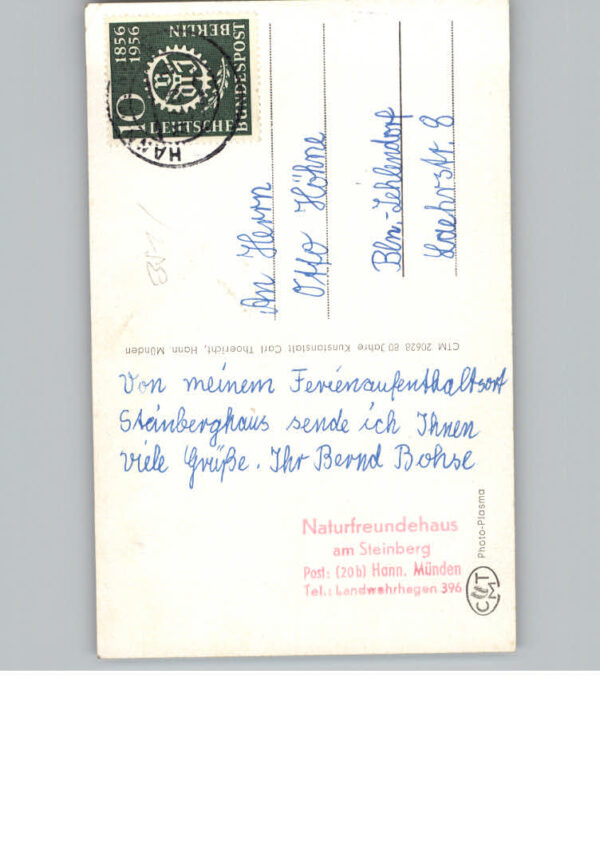 1856
1956
10
DEUTSCHE
BUNDESPOST
BERLIN
HA
An Herrn
Otto Höhne
Bln.-Zehlendorf
Laehrstr. 8
CTM 20628 80 Jahre Kunstanstalt Carl Thoericht, Hann. Münden
Von meinem Ferienaufenthaltsort
Steinberghaus sende ich Ihnen
viele Grüße. Ihr Bernd Bohse
Naturfreundehaus
am Steinberg
Post: (20b) Hann. Münden
Tel.: Landwehrhagen 396
Photo-Plasma